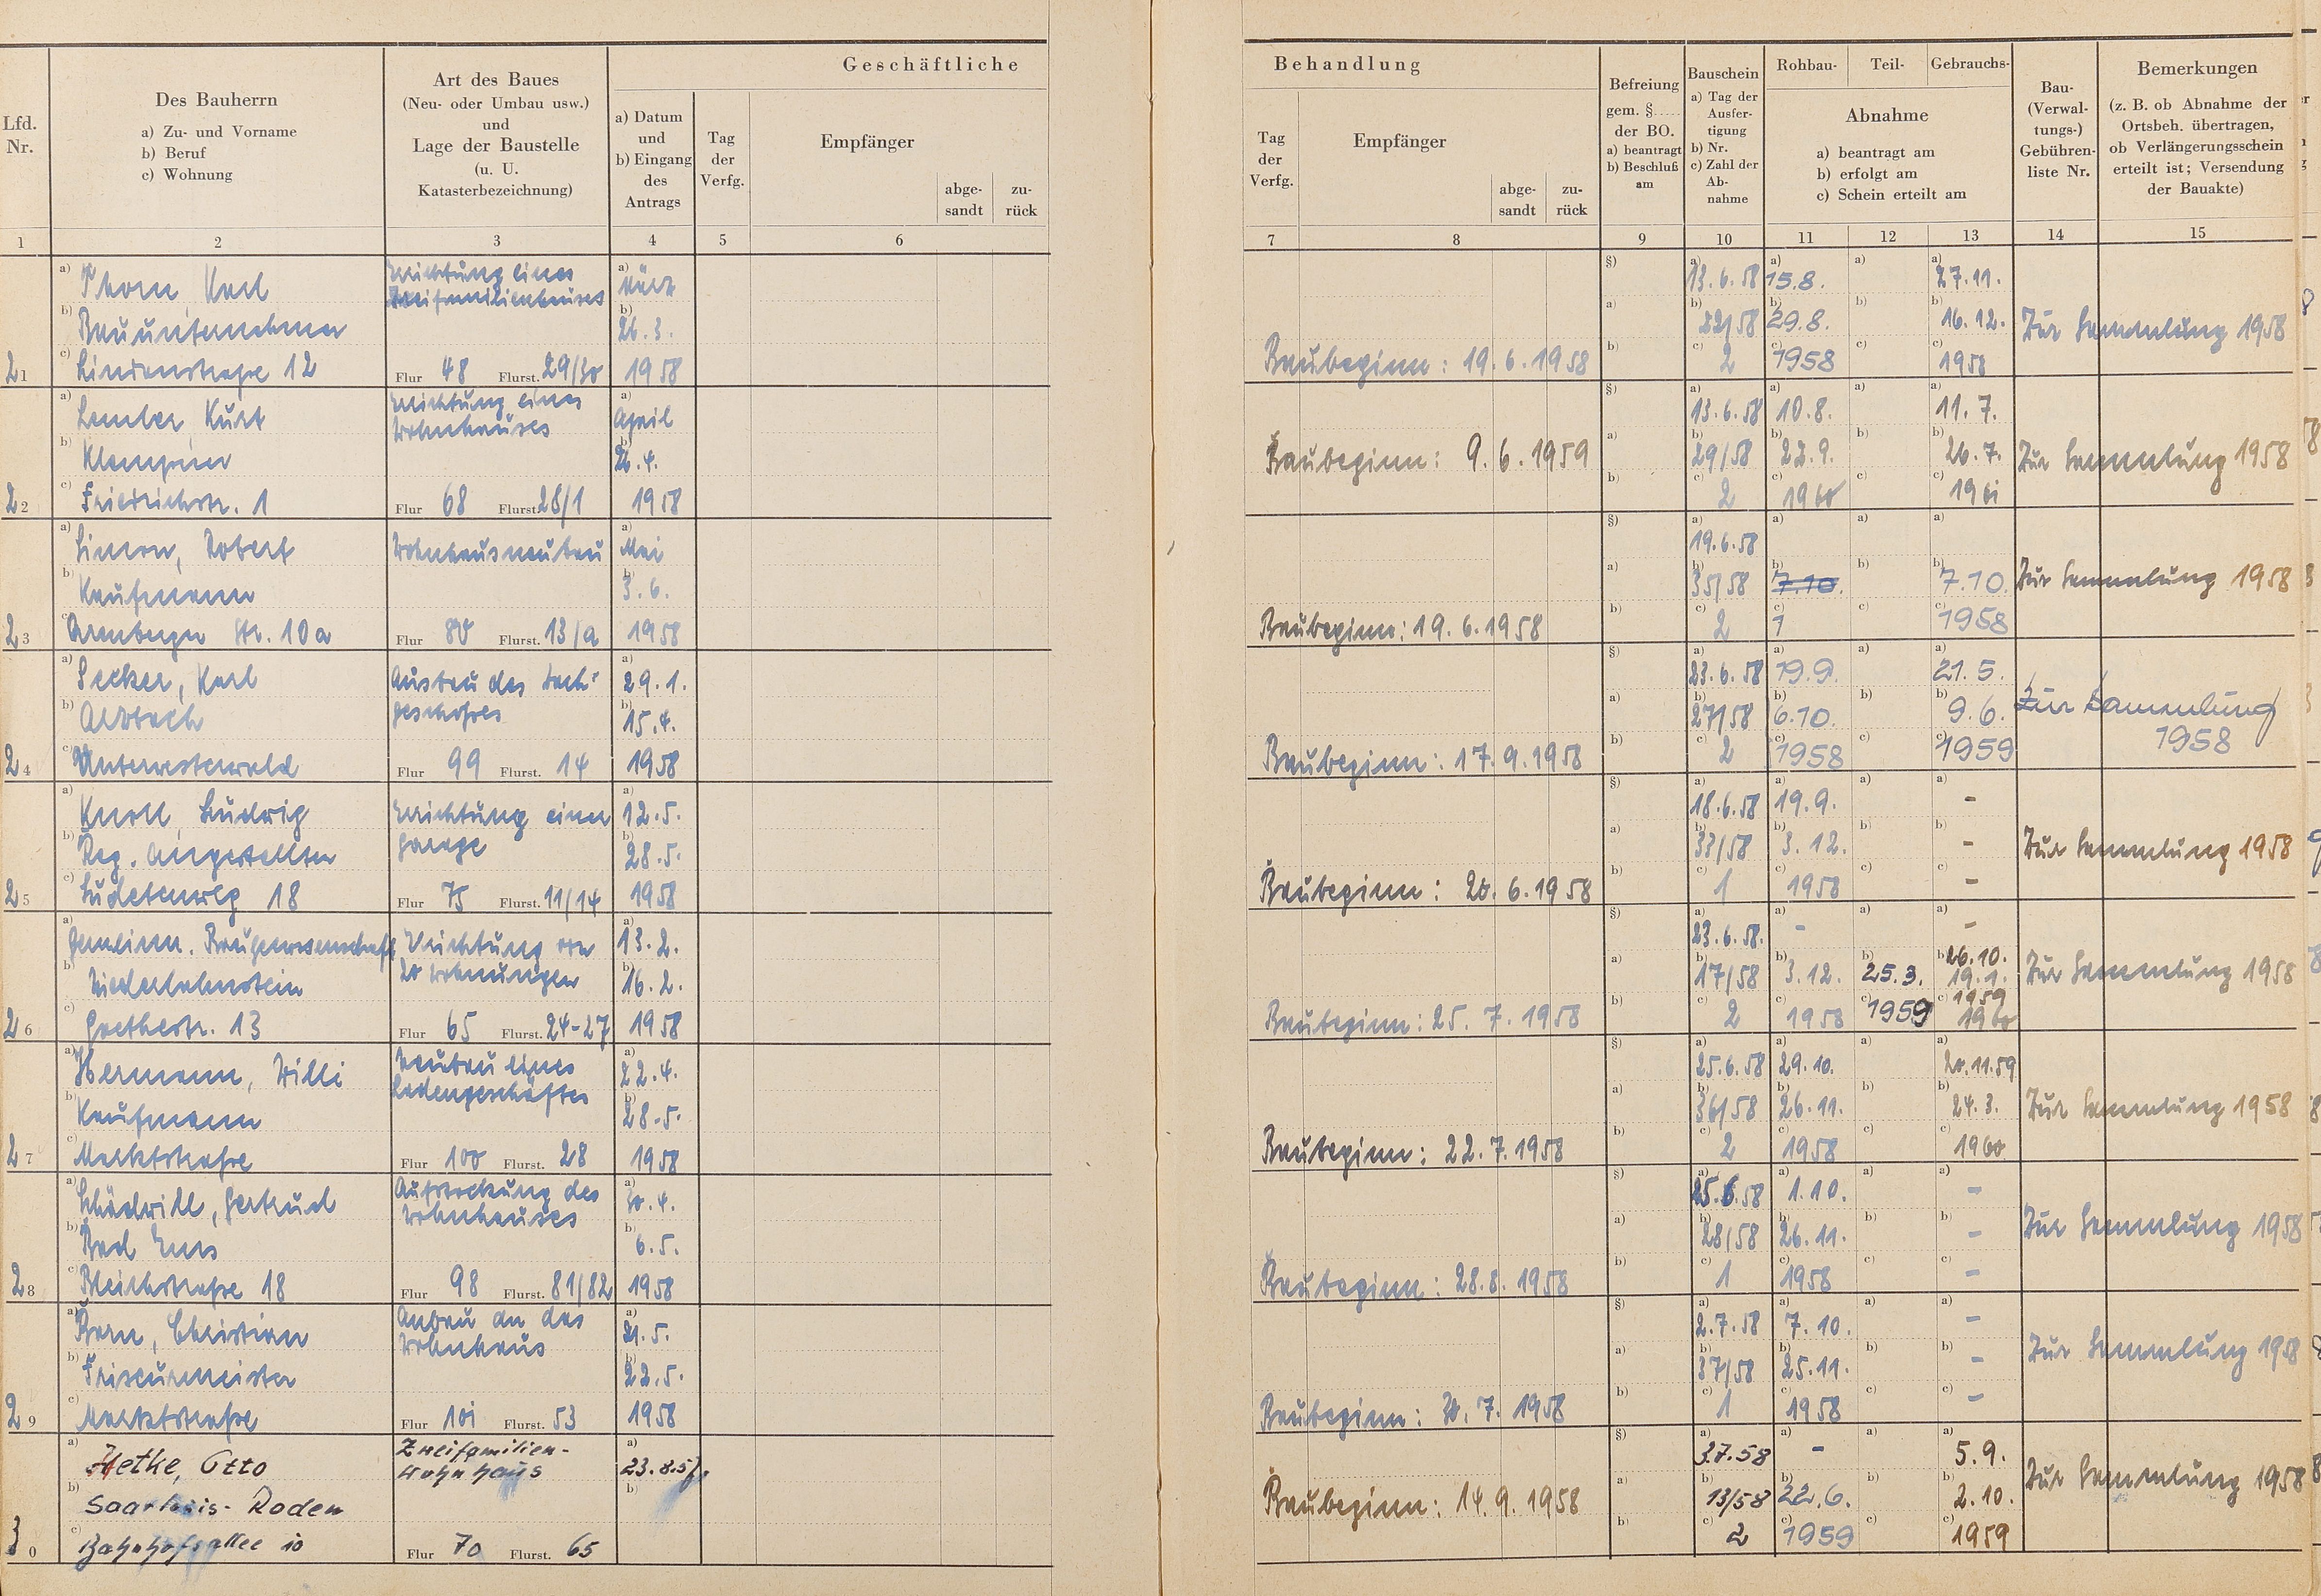 Geschäftliche
Lfd.
Nr.
Des Bauherrn
a) Zu- und Vorname
b) Beruf
c) Wohnung
Art des Baues
(Neu- oder Umbau usw.)
und
Lage der Baustelle
(u. U.
Katasterbezeichnung)
a) Datum
und
b) Eingang
des
Antrags
Tag
der
Verfg.
Empfänger
abge-
sandt
zu-
rück
1 2 3 4 5 6
a) Thorn, Karl
Errichtung eines
Zweifamilienhauses
a) März
b) Bauunternehmer
b) 26.3.
21 c) Lindenstraße 12 Flur 48 Flurst. 29/30 1958
a) Lember, Kurt
Errichtung eines
Wohnhauses
a) April
b) Klempner
b) 26.4.
22 c) Friedrichstr. 1 Flur 68 Flurst. 28/1 1958
a) Simon, Robert Wohnhausneubau a) Mai
b) Kaufmann b) 3.6.
23 c) Arenberger Str. 10a Flur 80 Flurst. 13/a 1958
a) Secker, Karl Ausbau des Dach- a) 29.1.
b) Arzbach geschoßes b) 15.4.
24 c) Unterwesterwald Flur 99 Flurst. 14 1958
a) Knoll, Ludwig Errichtung einer a) 12.5.
b) Reg. Angestellter Garage b) 28.5.
25 c) Sudetenweg 18 Flur 75 Flurst. 11/14 1958
a) Gemeinn. Baugenossenschaft Errichtung von a) 13.2.
b) Niederlahnstein 20 Wohnungen b) 16.2.
26 c) Goethestr. 13 Flur 65 Flurst. 24-27 1958
a) Hermann, Willi
Neubau eines
Ladengeschäftes
a) 22.4.
b) Kaufmann b) 28.5.
27 c) Marktstraße Flur 100 Flurst. 28 1958
a) Gertrud
Aufstockung des
Wohnhauses
a) 30.4.
b) Bad Ems b) 6.5.
28 c) Bleichstraße 18 Flur 98 Flurst. 81/82 1958
a) Born, Christian
Anbau an das
Wohnhaus
a) 21.5.
b) Friseurmeister b) 22.5.
29 c) Marktstraße Flur 101 Flurst. 53 1958
a) Hetke, Otto
Zweifamilien-
wohnhaus
a) 23.8.57.
b) Saarlouis-Roden b)
30 c) Bahnhofsallee 10 Flur 70 Flurst. 65
Behandlung
Tag
der
Verfg.
Empfänger
abge-
sandt
zu-
rück
Befreiung
gem. §......
der BO.
a) beantragt
b) Beschluß
am
Bauschein
a) Tag der
Ausfer-
tigung
b) Nr.
c) Zahl der
Ab-
nahme
Rohbau- Teil- Gebrauchs-
Abnahme
a) beantragt am
b) erfolgt am
c) Schein erteilt am
Bau-
(Verwal-
tungs-)
Gebühren-
liste Nr.
Bemerkungen
(z. B. ob Abnahme der
Ortsbeh. übertragen,
ob Verlängerungsschein
erteilt ist; Versendung
der Bauakte)
7 8 9 10 11 12 13 14 15
§) a) 13.6.58 a) 15.8. a) a) 27.11.
a) b) 22/58 b) 29.8. b) b) 16.12. Zur Sammlung 1958
Baubeginn: 19.6.1958 b) c) 2 c) 1958 c) c) 1958
§) a) 13.6.58 a) 10.8. a) a) 11.7.
Baubeginn: 9.6.1959 a) b) 29/58 b) 22.9. b) b) 26.7. Zur Sammlung 1958
b) c) 2 c) 1960 c) c) 1961
§) a) 19.6.58 a) a) a)
a) b) 35/58 b) 7.10. b) b) 7.10. Zur Sammlung 1958
Baubeginn: 19.6.1958 b) c) 2 c) 1 c) c) 1958
§) a) 23.6.58 a) 19.9. a) a) 21.5.
a) b) 27/58 b) 6.10. b) b) 9.6. Zur Sammlung
1958
Baubeginn: 17.9.1958 b) c) 2 c) 1958 c) c) 1959
§) a) 18.6.58 a) 19.9. a) a) -
a) b) 33/58 b) 3.12. b) b) - Zur Sammlung 1958
Baubeginn: 20.6.1958 b) c) 1 c) 1958 c) c) -
§) a) 23.6.58. a) - a) a) -
a) b) 17/58 b) 3.12. b) 25.3. b) 26.10. 19.1. Zur Sammlung 1958
Baubeginn: 25.7.1958 b) c) 2 c) 1958 c) 1959 c) 1959 1960
§) a) 25.6.58 a) 29.10. a) a) 20.11.59
a) b) 36/58 b) 26.11. b) b) 24.3. Zur Sammlung 1958
Baubeginn: 22.7.1958 b) c) 2 c) 1958 c) c) 1960
§) a) 25.6.58 a) 1.10. a) a) -
a) b) 28/58 b) 26.11. b) b) - Zur Sammlung 1958
Baubeginn: 28.8.1958 b) c) 1 c) 1958 c) c) -
§) a) 2.7.58 a) 7.10. a) a) -
a) b) 37/58 b) 25.11. b) b) - Zur Sammlung 1958
Baubeginn: 30.7.1958 b) c) 1 c) 1958 c) c) -
§) a) 3.7.58 a) - a) a) 5.9.
Baubeginn: 14.9.1958 a) b) 13/58 b) 22.6. b) b) 2.10. Zur Sammlung 1958
b) c) 2 c) 1959 c) c) 1959